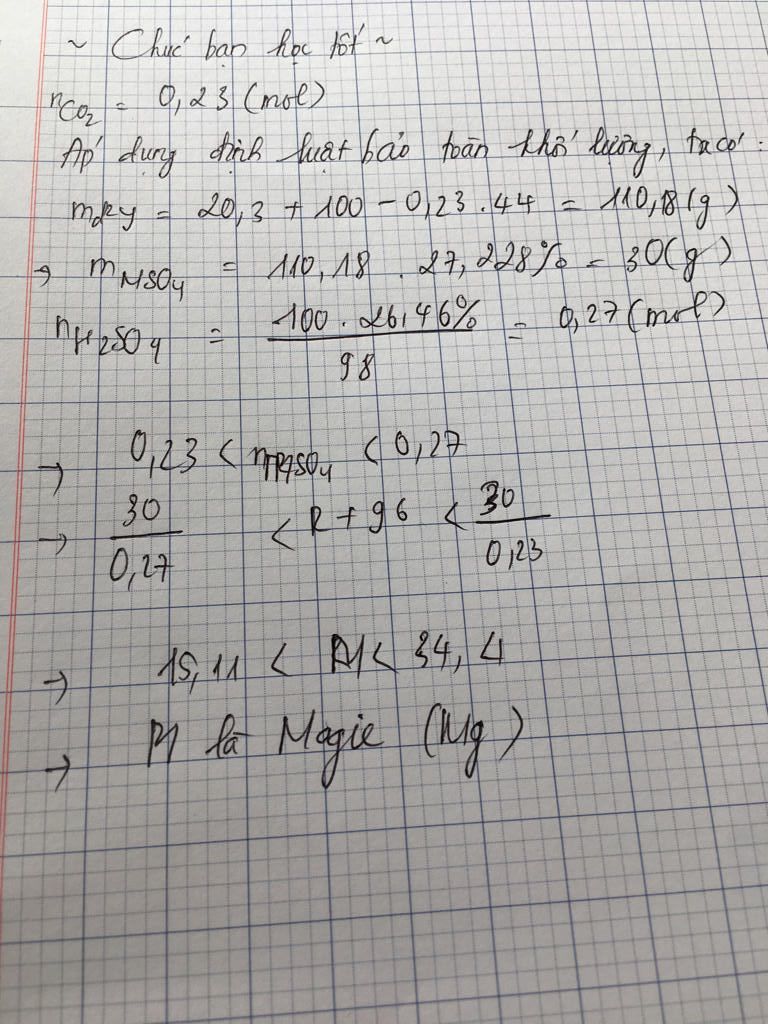 ~ Chúc bạn học tốt ~
nCO2 = 0,23 (mol)
Áp dụng định luật bảo toàn khối lượng, ta có:
mddY = 20,3 + 100 - 0,23.44 = 110,18 (g)
→ mMSO4 = 110,18 . 27,228% = 30(g)
nH2SO4 = 100.26,46% / 98 = 0,27 (mol)
→ 0,23 < nMSO4 < 0,27
→ 30 / 0,27 < R + 96 < 30 / 0,23
→ 15,11 < M < 34,4
→ M là Magie (Mg)